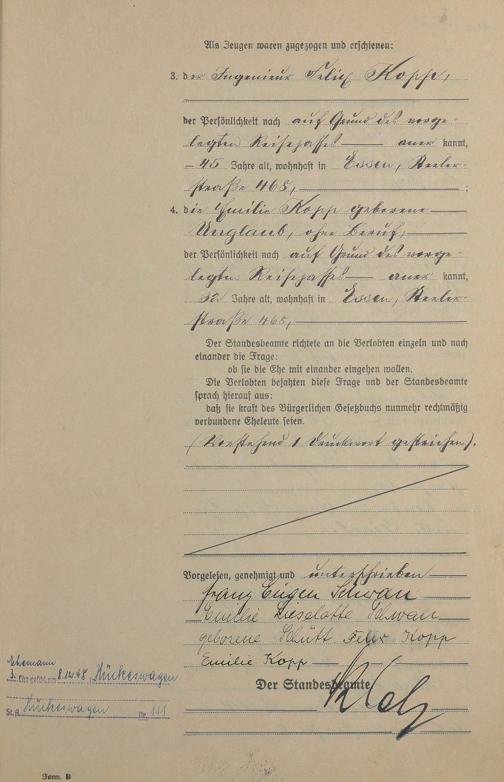 Als Zeugen waren zugezogen und erschienen:
3. der Ingenieur Felix Kopp,
der Persönlichkeit nach auf Grund des vorge-
legten Reisepasses anerkannt,
45 Jahre alt, wohnhaft in Essen, Steeler-
straße 468,
4. die Emilie Kopp geborene
Unglaub, ohne Beruf,
der Persönlichkeit nach auf Grund des vorge-
legten Reisepasses anerkannt,
Jahre alt, wohnhaft in Essen, Steeler-
straße 468,
Der Standesbeamte richtete an die Verlobten einzeln und nach
einander die Frage:
ob sie die Ehe mit einander eingehen wollen.
Die Verlobten bejahten diese Frage und der Standesbeamte
sprach hierauf aus:
daß sie kraft des Bürgerlichen Gesetzbuchs nunmehr rechtmäßig
verbundene Eheleute seien.
(Vorstehend 1 Druckwort gestrichen).
Vorgelesen, genehmigt und unterschrieben
Franz Eugen Schwan
Emilie Lieselotte Schwan
geborene Schütt Felix Kopp
Emilie Kopp
Der Standesbeamte
Ehemann
3. Ehe geschl. am 8.12.48 Hückeswagen
St.A. Hückeswagen Nr. 111
Form. B